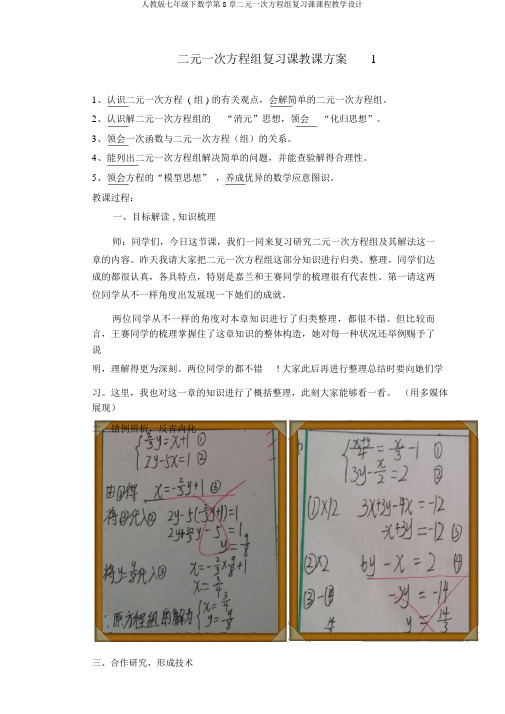 人教版七年级下数学第8章二元一次方程组复习课课程教学设计
二元一次方程组复习课教课方案 1
1、认识二元一次方程 ( 组 ) 的有关观点，会解简单的二元一次方程组。
2、认识解二元一次方程组的 “消元”思想，领会 “化归思想”。
3、领会一次函数与二元一次方程（组）的关系。
4、能列出二元一次方程组解决简单的问题，并能查验解得合理性。
5、领会方程的“模型思想” ，养成优异的数学应意图识。
教课过程：
一、目标解读 , 知识梳理
师：同学们，今日这节课，我们一同来复习研究二元一次方程组及其解法这一
章的内容。昨天我请大家把二元一次方程组这部分知识进行归类、整理。同学们达
成的都很认真，各具特点，特别是嘉兰和王赛同学的梳理很有代表性。第一请这两
位同学从不一样角度出发展现一下她们的成就。
两位同学从不一样的角度对本章知识进行了归类整理，都很不错。但比较而
言，王赛同学的梳理掌握住了这章知识的整体构造，她对每一种状况还举例赐予了
说
明，理解得更为深刻。两位同学的都不错 ！大家此后再进行整理总结时要向她们学
习。这里，我也对这一章的知识进行了概括整理，此刻大家能够看一看。 （用多媒体
展现）
二、错例辨析，反省内化
{ 2/3y=x+1 ①
2y-5x=1 ②
由①得 x=-2/3y+1 ③
将③代入② 2y-5(-2/3y+1)=1
y=9/8
将y=9/8代入③ x=-2/3×9/8+1
x=3/4
∴原方程组的解为 { x=3/4 y=9/8
{ (x+y)/4=x/3-1 ①
3y-x/2=2 ②
①×12 3x+3y-4x=-12
-x+3y=-12 ③
②×2 6y-x=2 ④
③-④ -3y=-14
y=14/3
三、合作研究，形成技术